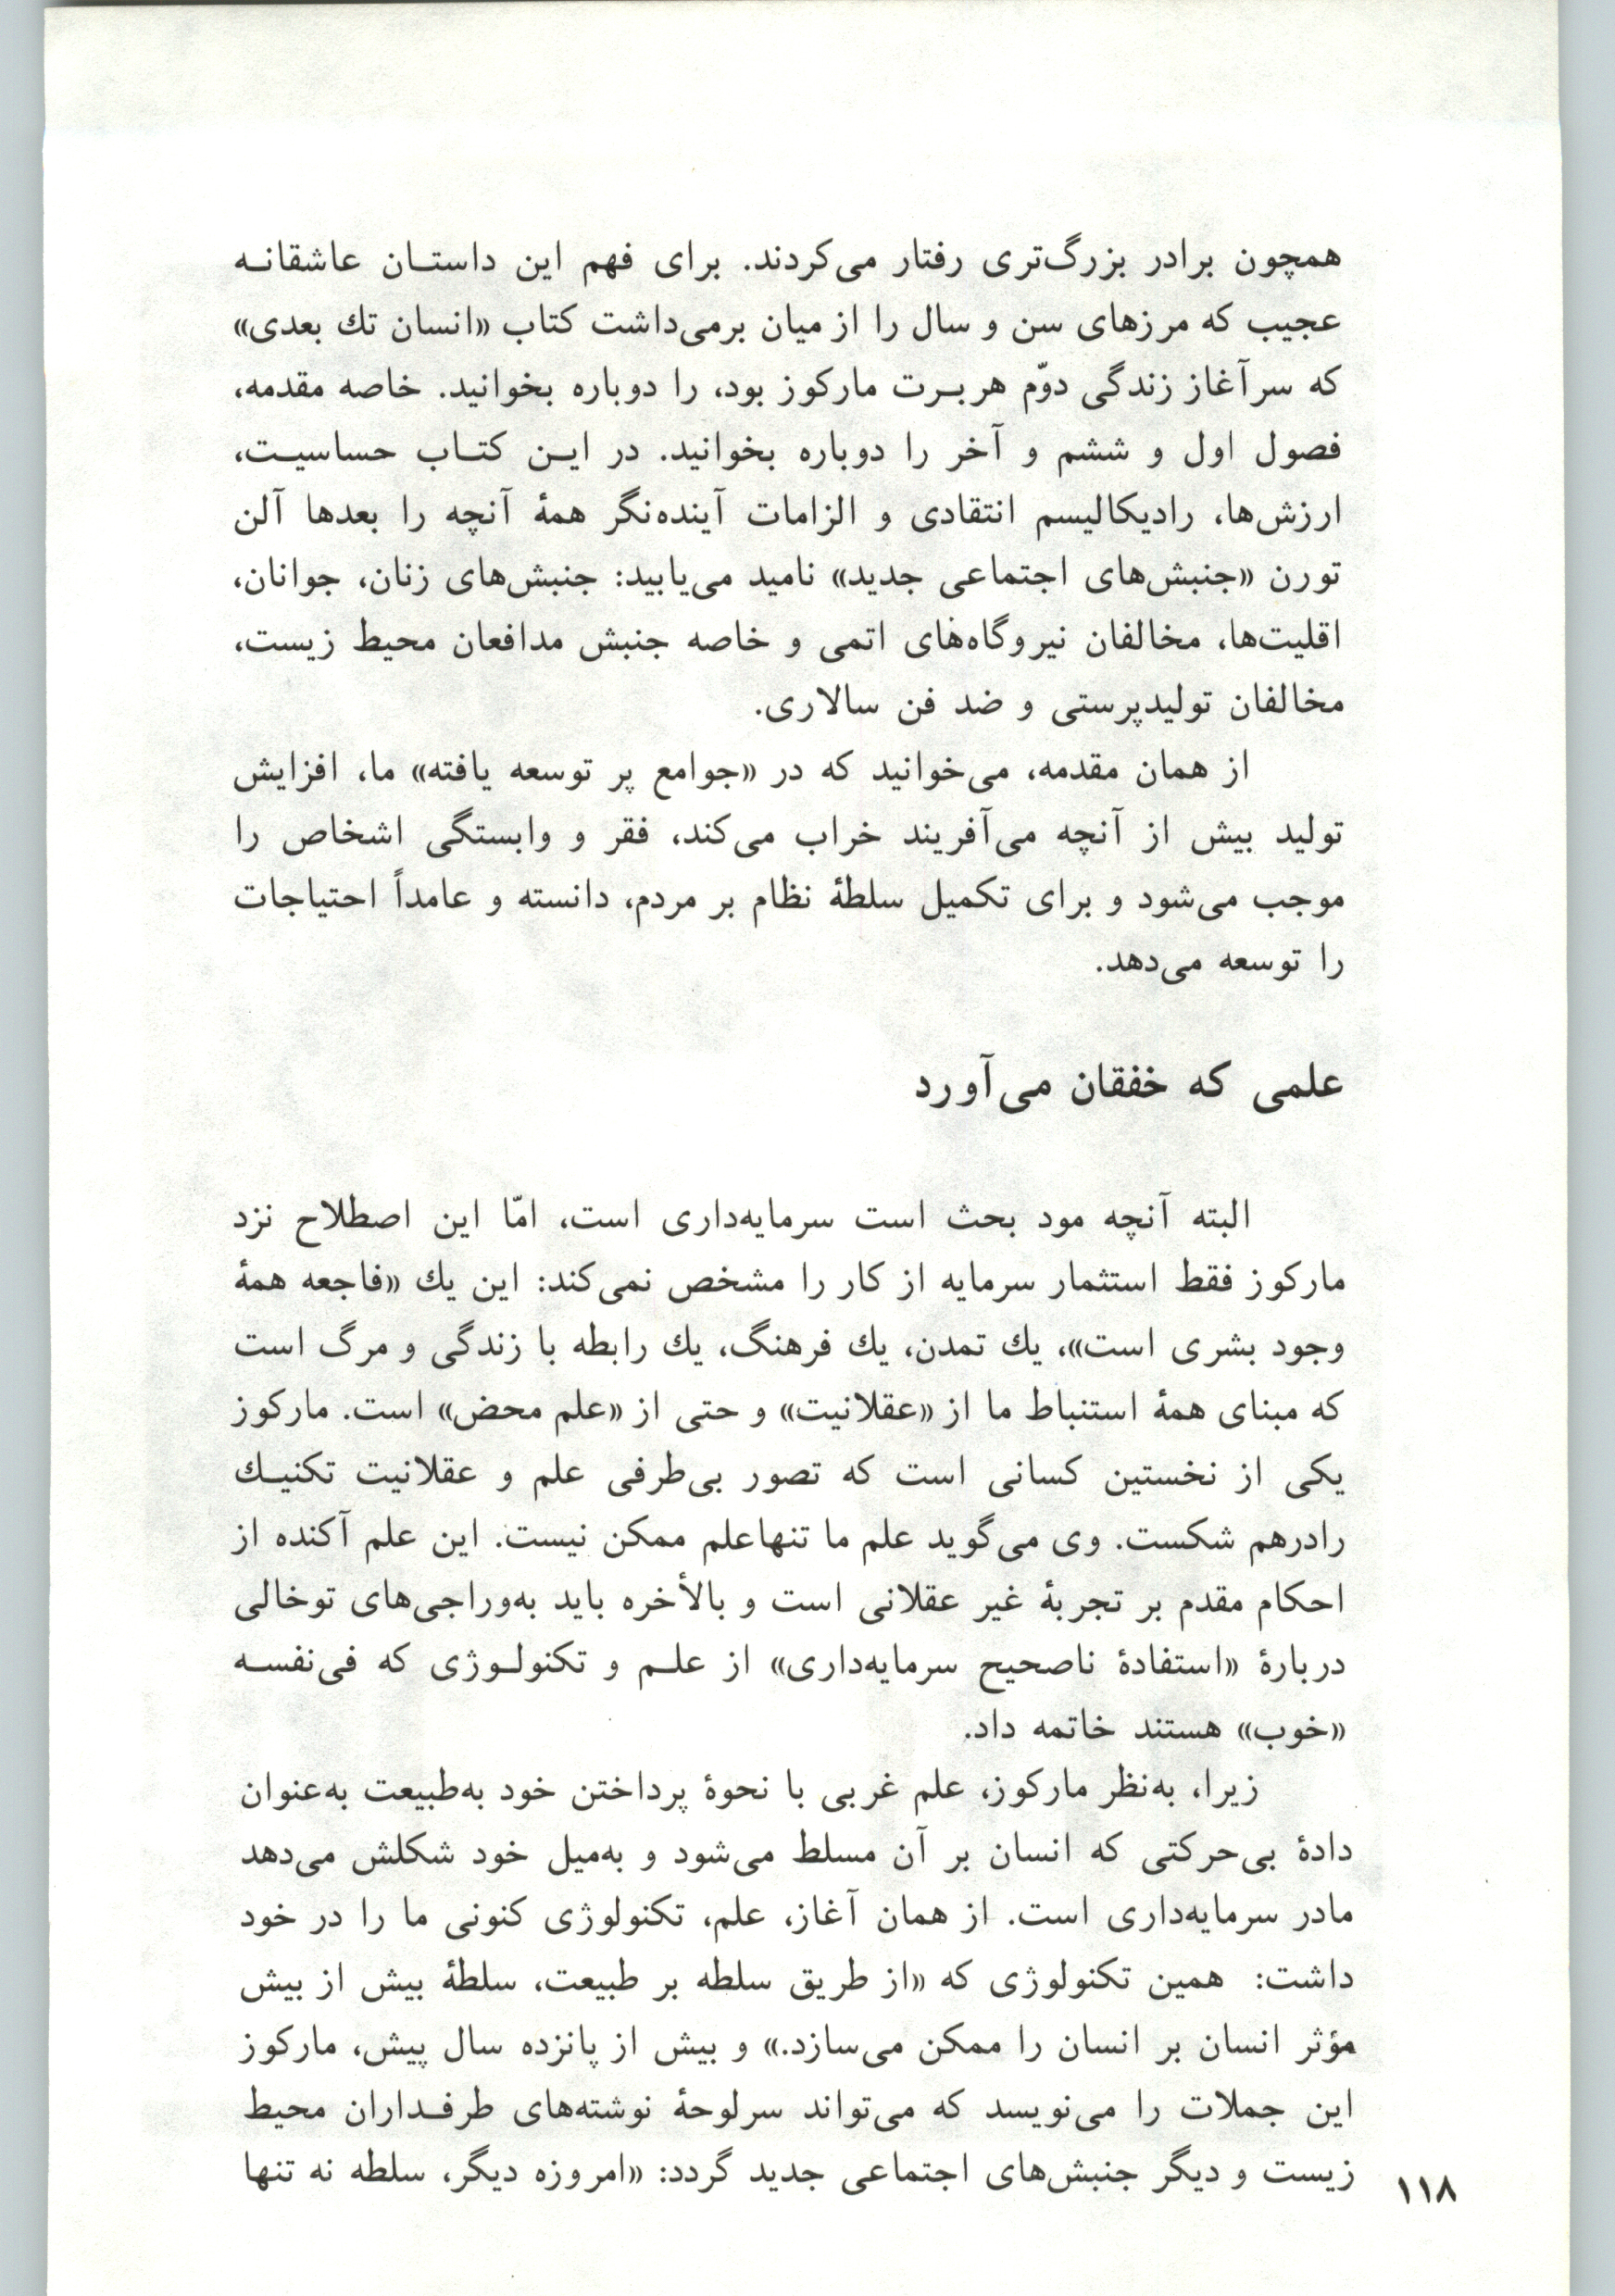 همچون برادر بزرگ‌تری رفتار می‌کردند. برای فهم این داستان عاشقانه
عجیب که مرزهای سن و سال را از میان برمی‌داشت کتاب «انسان تك بعدی»
که سرآغاز زندگی دوّم هربرت مارکوز بود، را دوباره بخوانید. خاصه مقدمه،
فصول اول و ششم و آخر را دوباره بخوانید. در این کتاب حساسیت،
ارزش‌ها، رادیکالیسم انتقادی و الزامات آینده‌نگر همهٔ آنچه را بعدها آلن
تورن «جنبش‌های اجتماعی جدید» نامید می‌یابید: جنبش‌های زنان، جوانان،
اقلیت‌ها، مخالفان نیروگاه‌های اتمی و خاصه جنبش مدافعان محیط زیست،
مخالفان تولیدپرستی و ضد فن سالاری.
از همان مقدمه، می‌خوانید که در «جوامع پر توسعه یافته» ما، افزایش
تولید بیش از آنچه می‌آفریند خراب می‌کند، فقر و وابستگی اشخاص را
موجب می‌شود و برای تکمیل سلطهٔ نظام بر مردم، دانسته و عامداً احتیاجات
را توسعه می‌دهد.
علمی که خفقان می‌آورد
البته آنچه مود بحث است سرمایه‌داری است، امّا این اصطلاح نزد
مارکوز فقط استثمار سرمایه از کار را مشخص نمی‌کند: این یك «فاجعه همهٔ
وجود بشری است»، یك تمدن، یك فرهنگ، یك رابطه با زندگی و مرگ است
که مبنای همهٔ استنباط ما از «عقلانیت» و حتی از «علم محض» است. مارکوز
یکی از نخستین کسانی است که تصور بی‌طرفی علم و عقلانیت تکنیك
رادرهم شکست. وی می‌گوید علم ما تنهاعلم ممکن نیست. این علم آکنده از
احکام مقدم بر تجربهٔ غیر عقلانی است و بالأخره باید به‌وراجی‌های توخالی
دربارهٔ «استفادهٔ ناصحیح سرمایه‌داری» از علم و تکنولوژی که فی‌نفسه
«خوب» هستند خاتمه داد.
زیرا، به‌نظر مارکوز، علم غربی با نحوهٔ پرداختن خود به‌طبیعت به‌عنوان
دادهٔ بی‌حرکتی که انسان بر آن مسلط می‌شود و به‌میل خود شکلش می‌دهد
مادر سرمایه‌داری است. از همان آغاز، علم، تکنولوژی کنونی ما را در خود
داشت: همین تکنولوژی که «از طریق سلطه بر طبیعت، سلطهٔ بیش از بیش
مؤثر انسان بر انسان را ممکن می‌سازد.» و بیش از پانزده سال پیش، مارکوز
این جملات را می‌نویسد که می‌تواند سرلوحهٔ نوشته‌های طرفداران محیط
زیست و دیگر جنبش‌های اجتماعی جدید گردد: «امروزه دیگر، سلطه نه تنها
۱۱۸